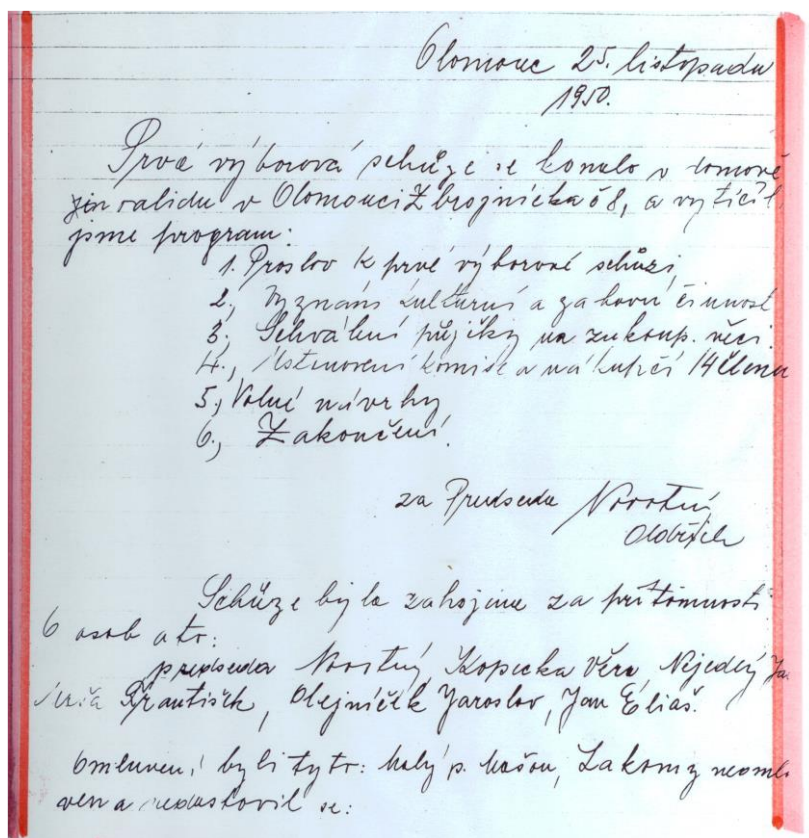 Olomouc 25. listopadu
1950.
Prvá výborová schůze se konalo v domově
invalidu v Olomouci Zbrojnická č 8, a vytícil
jsme program:
1. Proslov k prvé výborové schůzi
2., Význáns kulturní a zabovu činnost
3., Schválení půjčky na zakoup. věci.
4., Ustanovení komise a nákupčí 14 členu
5., Volné návrhy
6., Zakončení.
za Předseda Novotný
Oldřich
Schůze byla zahájena za přítomnosti
6 osob a to:
předseda Novotný, Kopecka Věra, Nejedlý
František, Olejníček Jaroslav, Jan Eliaš.
Omluveni byli tyto: malý p. Lakomy neoml
ven a nedostovil se: